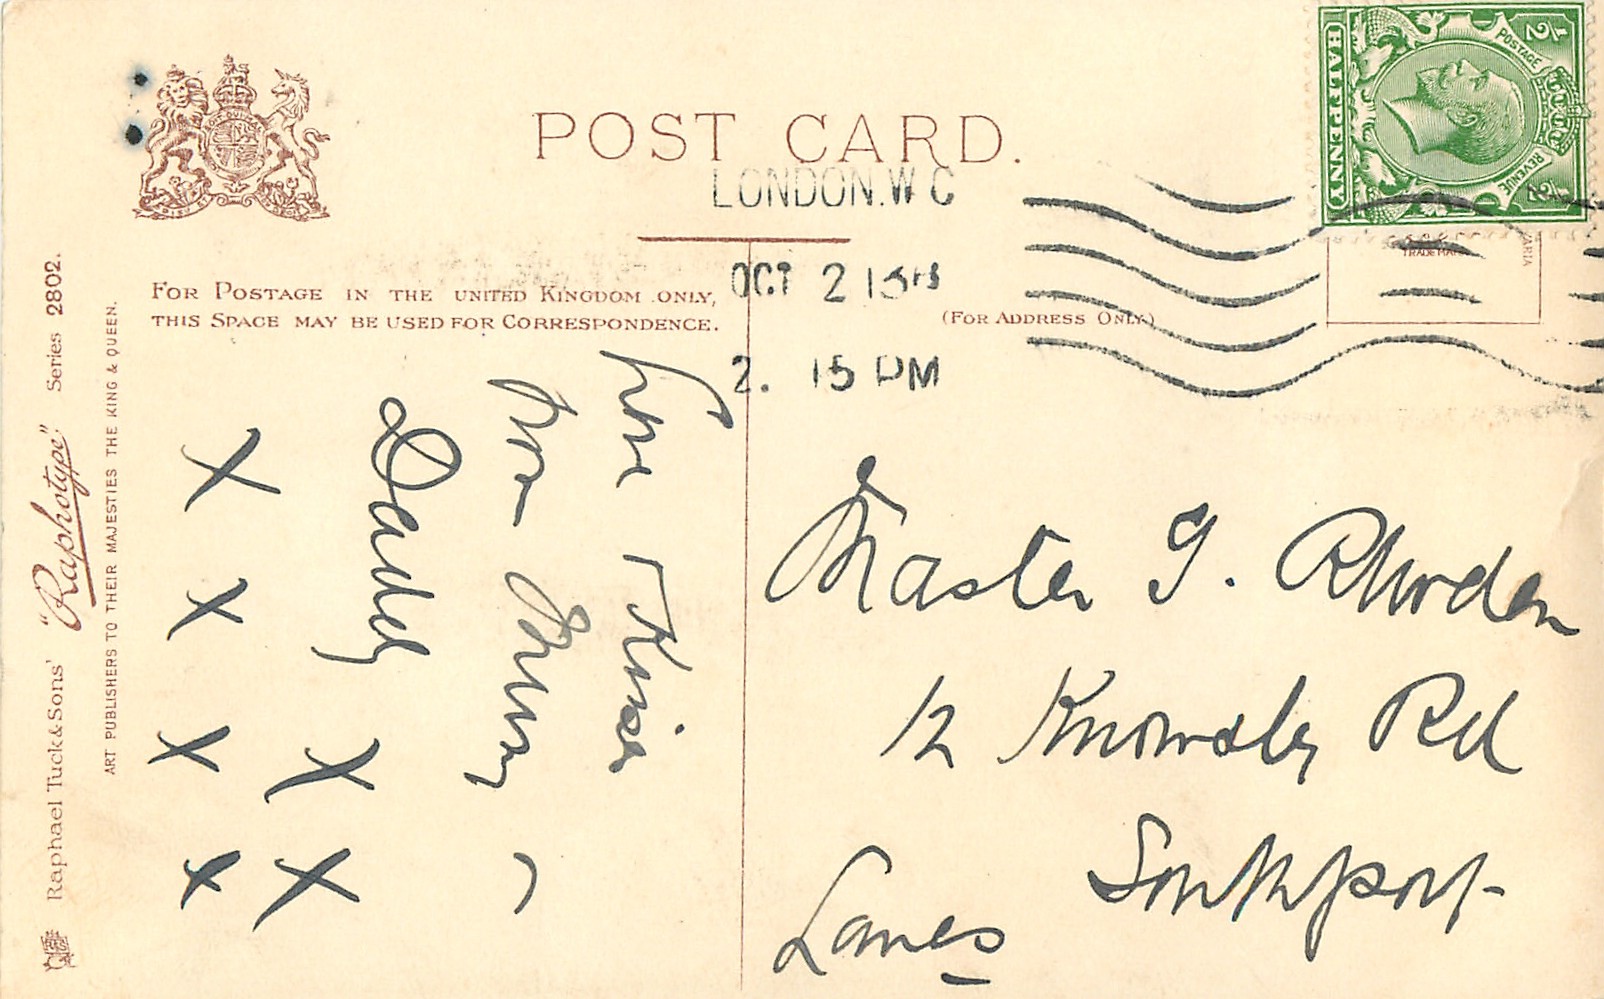 POST CARD.
LONDON. W C
OCT 2 13
2. 15 PM
FOR POSTAGE IN THE UNITED KINGDOM ONLY,
THIS SPACE MAY BE USED FOR CORRESPONDENCE.
(FOR ADDRESS ONLY.)
POSTAGE
REVENUE
HALFPENNY
1/2
1/2
TRADE MARK
Kisses
from Mummy
Daddy
X X
X X X X
Master G. Rhoden
12 Knowsley Rd
Southport
Lancs
Raphael Tuck & Sons' "Raphotype" Series 2802.
ART PUBLISHERS TO THEIR MAJESTIES THE KING & QUEEN.